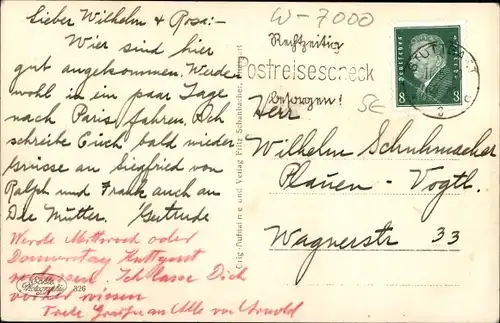 Lieber Wilhelm & Rosa:-
Wier sind hier
gut angekommen. Werde
wohl in ein paar Tage
nach Paris fahren. Ich
schreibe Euch bald wieder
Grüsse an Siegfried von
Ralph und Frank auch an
Die Mütter. Gertrude
Werde Mittwoch oder
Donnerstag Stuttgart
verlassen. Ich lasse Dich
vorher wissen
Grüße an Alle von Arnold
Echte
Photographie
326
Orig.-Aufnahme und Verlag Fritz Schanbacher, Stuttgart
W-7000
Rechtzeitig
Postreisescheck
besorgen!
STUTTGART
8 8
5€
Herr
Wilhelm Schuhmacher
Plauen - Vogtl.
Wagnerstr 33